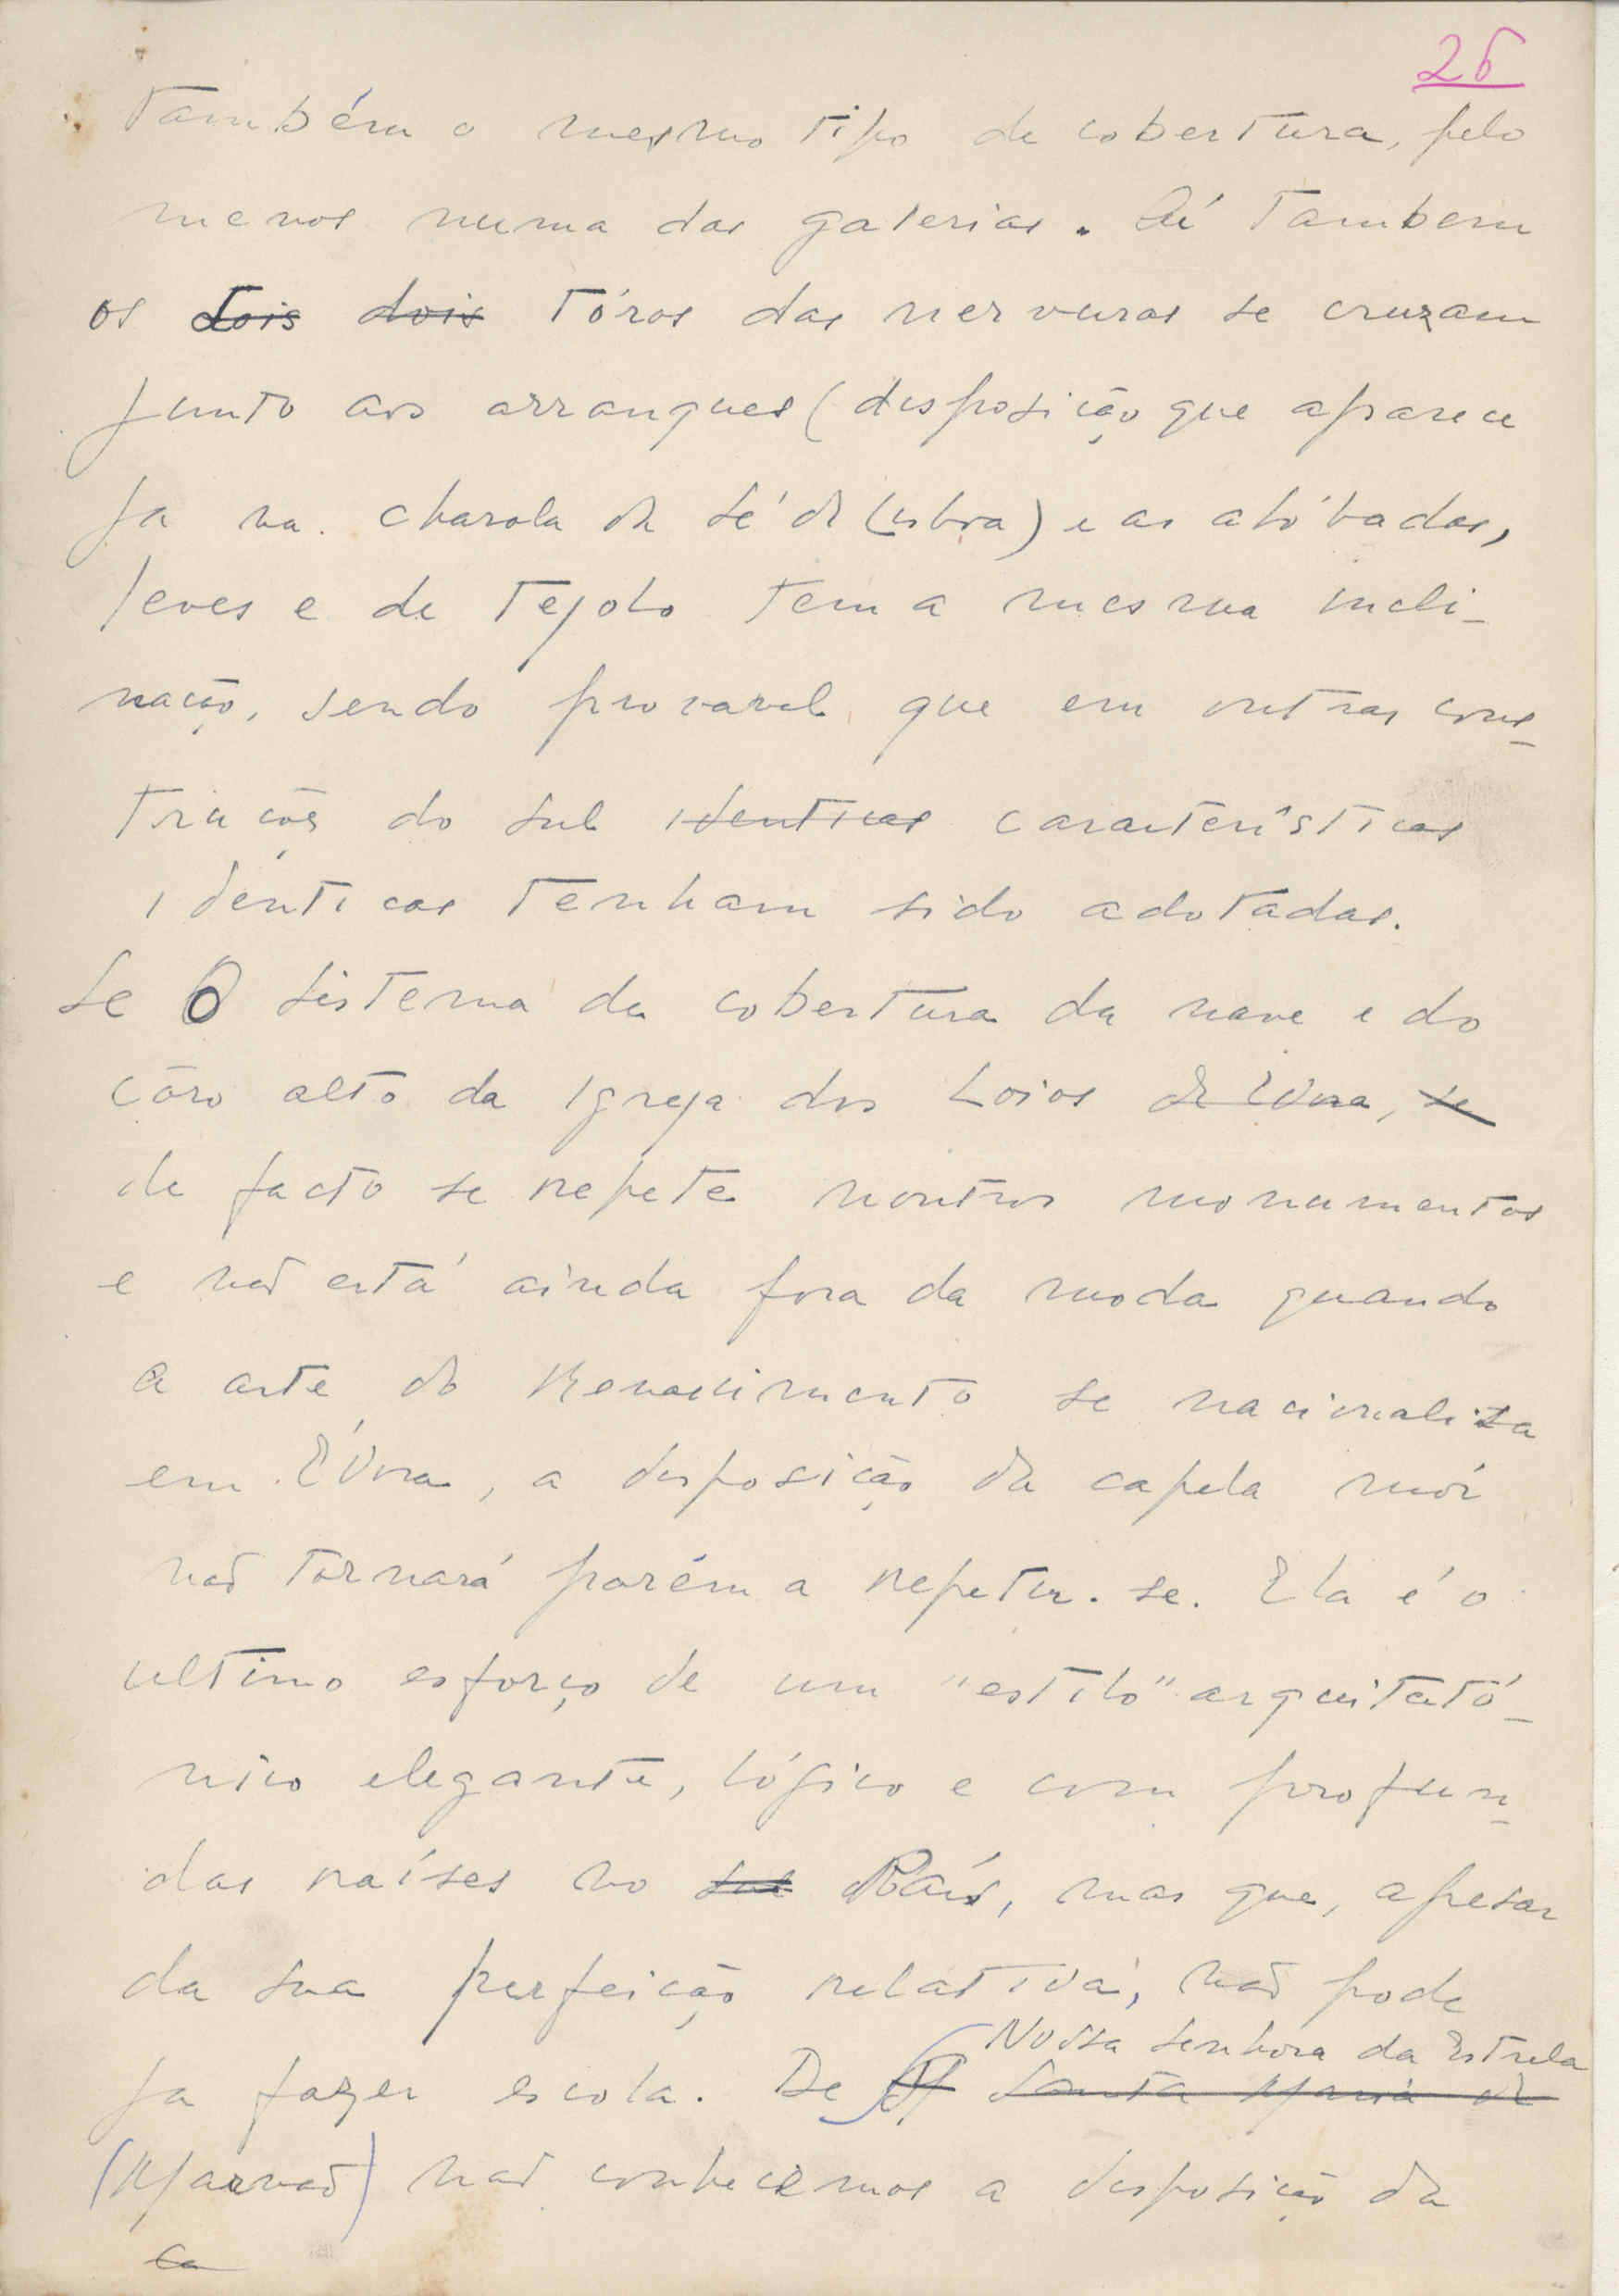 26
Também o mesmo tipo de cobertura, pelo
menos numa das galerias. Aí tambem
os dois dois tóros das nervuras se cruzam
junto aos arranques (disposição que aparece
ja na charola da Sé de Lisboa) e as abóbadas,
leves e de tejolo tem a mesma incli-
nação, sendo provavel que em outras cons-
truções do sul identicas características
identicas tenham sido adotadas.
Se O sistema da cobertura da nave e do
côro alto da Igreja dos Loios de Évora, se
de facto se repete noutros monumentos
e não está ainda fora da moda quando
a arte do Renascimento se nacionaliza
em Évora, a disposição da capela mór
não tornará porém a repetir-se. Ela é o
ultimo esforço de um "estilo" arquitetó-
nico elegante, lógico e com profun-
das raíses no sul País, mas que, apesar
da sua perfeição relativa, não pode
Nossa Senhora da Estrela
ja fazer escola. De Santa Maria de
(Marvão) não conhecemos a disposição da
ca